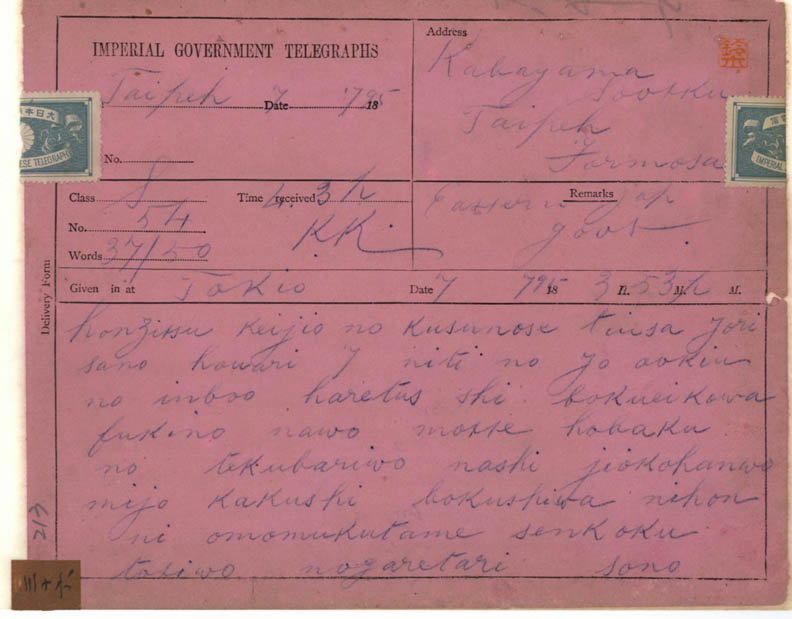 IMPERIAL GOVERNMENT TELEGRAPHS
Taipeh Date 7 7 1895
No.
Class S Time received 4. 3 h
No. 54
Words 37/50 K.K.
Address
Kabayama
Sootku
Taipeh
Formosa
Remarks
Eastern Jap
govt.
Delivery Form
Given in at Tokio Date 7 7 1895 3 H. 53 M. M.
honzitsu keijio no kusunose tiusa yori
sano howari 7 niti no yo ookiu
no inboo haretus shi bokueikowa
fukino nawo motte hobaku
no tekubariwo nashi jiokohanwo
mijo kakushi bokushiwa nihon
ni omomukutame senkoku
tosiwo nogaretari sono
213
大日本